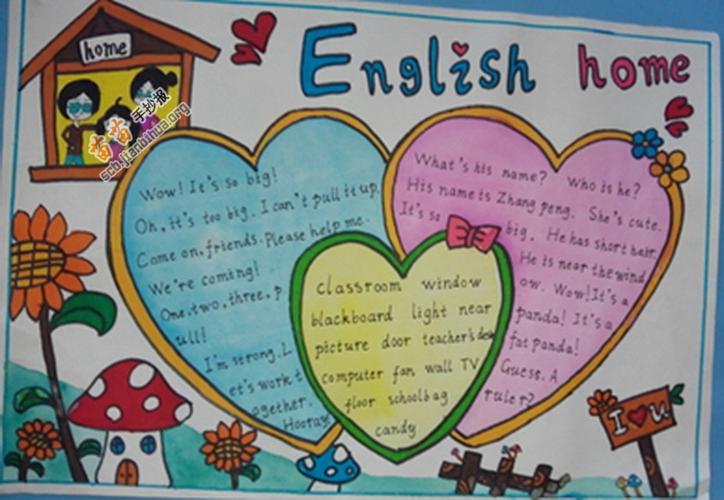 home
English home
苗苗手抄报
scb.jianbihua.org
Wow! It's so big!
Oh, it's too big. I can't pull it up.
Come on, friends. Please help me.
We're coming!
One, two, three, p
ull!
I'm strong. L
et's work t
ogether.
Hooray!
What's his name? Who is he?
His name is Zhang peng. She's cute.
It's so big. He has short hair.
He is near the wind
ow. Wow! It's a
panda! It's a
fat panda!
Guess. A
ruler?
classroom window
blackboard light near
picture door teacher's desk
computer fan wall TV
floor schoolbag
candy
I U